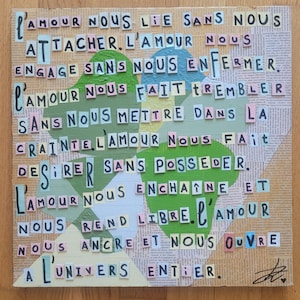 L'AMOUR NOUS LIE SANS NOUS
ATTACHER. L'AMOUR NOUS
ENGAGE SANS NOUS ENFERMER.
L'AMOUR NOUS FAIT tREMBLER
SANS NOUS METTRE DANS LA
CRAINTE. L'AMOUR NOUS FAit
DeSiRER SANS POSSEDER.
L'AMOUR NOUS ENCHAÎNE ET
NOUS REND LIBRE. L'AMOUR
NOUS ANCRE ET NOUS OUVRE
A L'UNIVERS ENTIER.